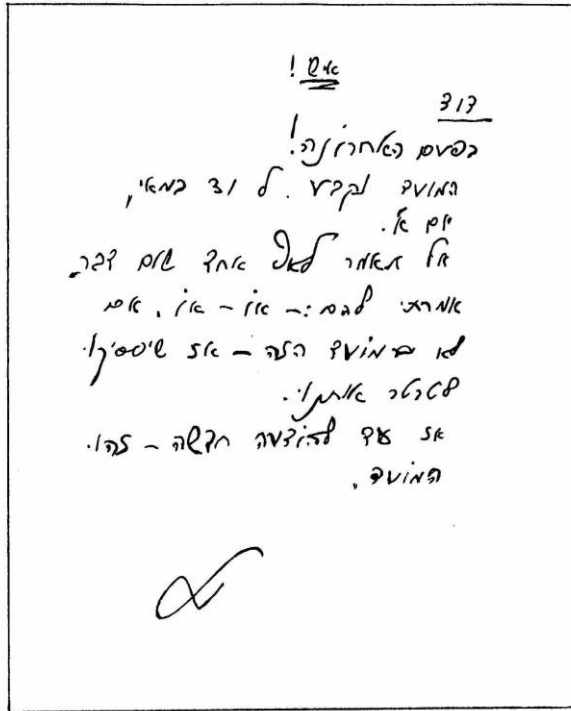 אישי!
דוד
בפעם האחרונה!
המועד נקבע. ל 31 במאי,
יום א'.
אל תאמר לאף אחד שום דבר
אמרתי להם: – או – או, אם
לא במועד הזה – אז שיפסיקו
לטרטר אותנו.
אז עד להודעה חדשה – זהו
המועד.